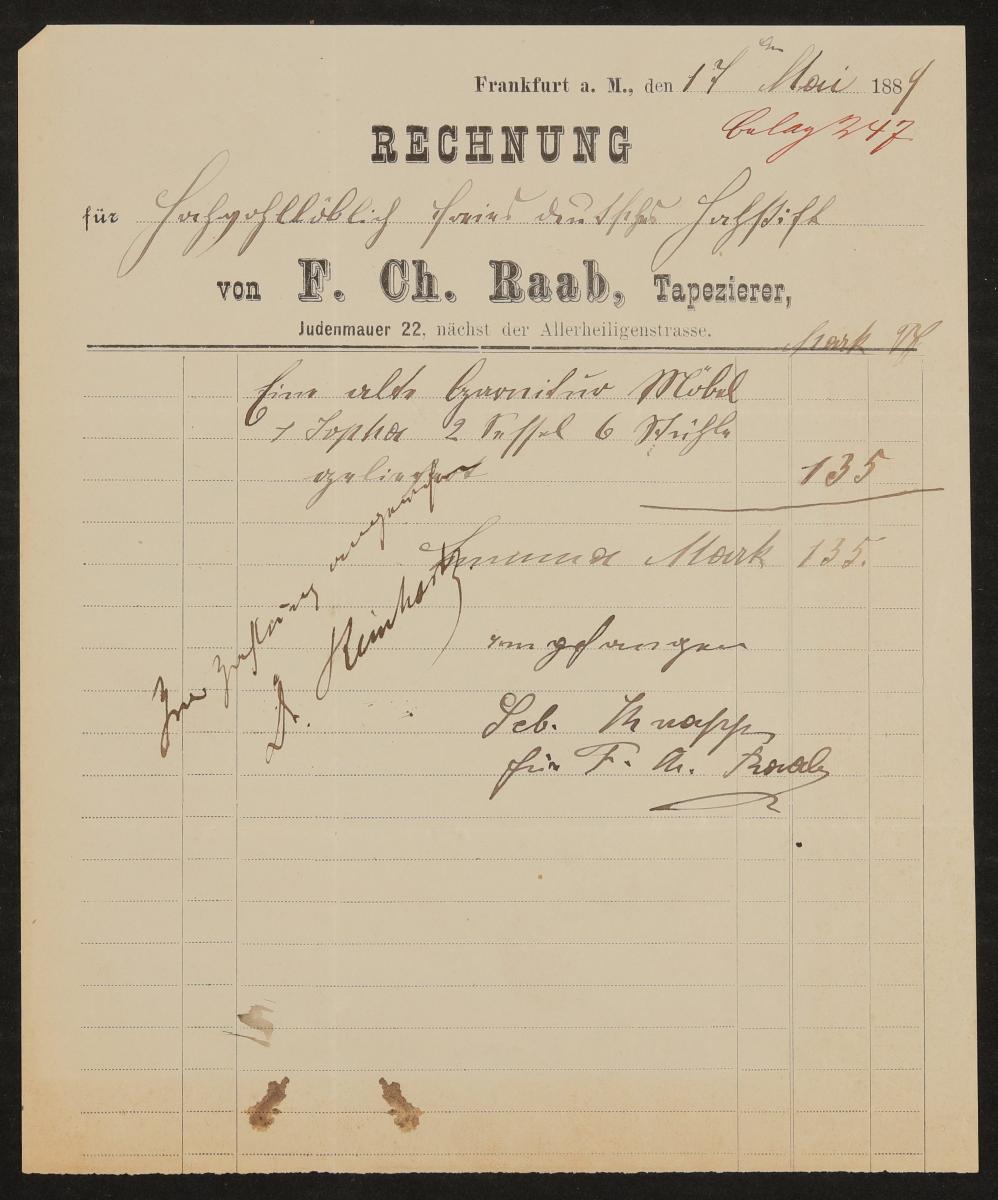 Frankfurt a. M., den 17 ten Mai 1884
Belag 247
RECHNUNG
für Hochwohllöblich freies deutsches Hochstift
von F. Ch. Raab, Tapezierer,
Judenmauer 22, nächst der Allerheiligenstrasse.
Mark Pf
Eine alte Garnitur Möbel
1 Sopha 2 Sessel 6 Stühle
geliefert 135
Summa Mark 135.
Zur Zahlung angewiesen
Dr. Reinhardt
empfangen
Seb. Knapp
für F. Ch. Raab